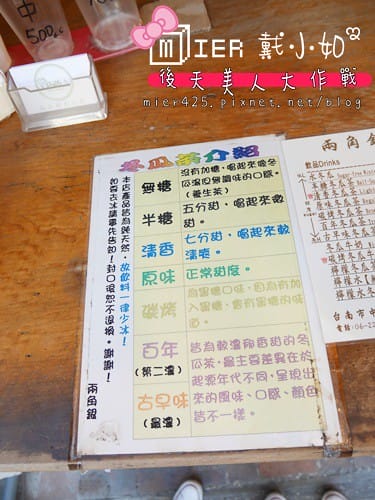 中
500cc
MIER 戴小如
後天美人大作戰
mier425.pixnet.net/blog
冬瓜茶介紹
無糖 沒有加糖，喝起來像冬
瓜湯但無調味的口感。
（養生茶）
半糖 五分甜，喝起來微
甜。
清香 七分甜，喝起來微
清甜。
原味 正常甜度。
碳烤 為蜜糖口味，因為有加
入蜜糖，會有蜜糖的味
道。
百年
（第二濃）
古早味
（最濃）
皆為軟濃郁香甜的冬
瓜茶，最主要差異在於
起源年代不同，呈現出
來的風味、口感、顏色
皆不一樣。
本店產品皆為純天然，故飲料一律少冰！
如要去冰請事先告知！封口後恕不退換。謝謝！
兩角銀
兩角銀
飲品Drinks
冬瓜牛奶
台南市中
電話：06-22